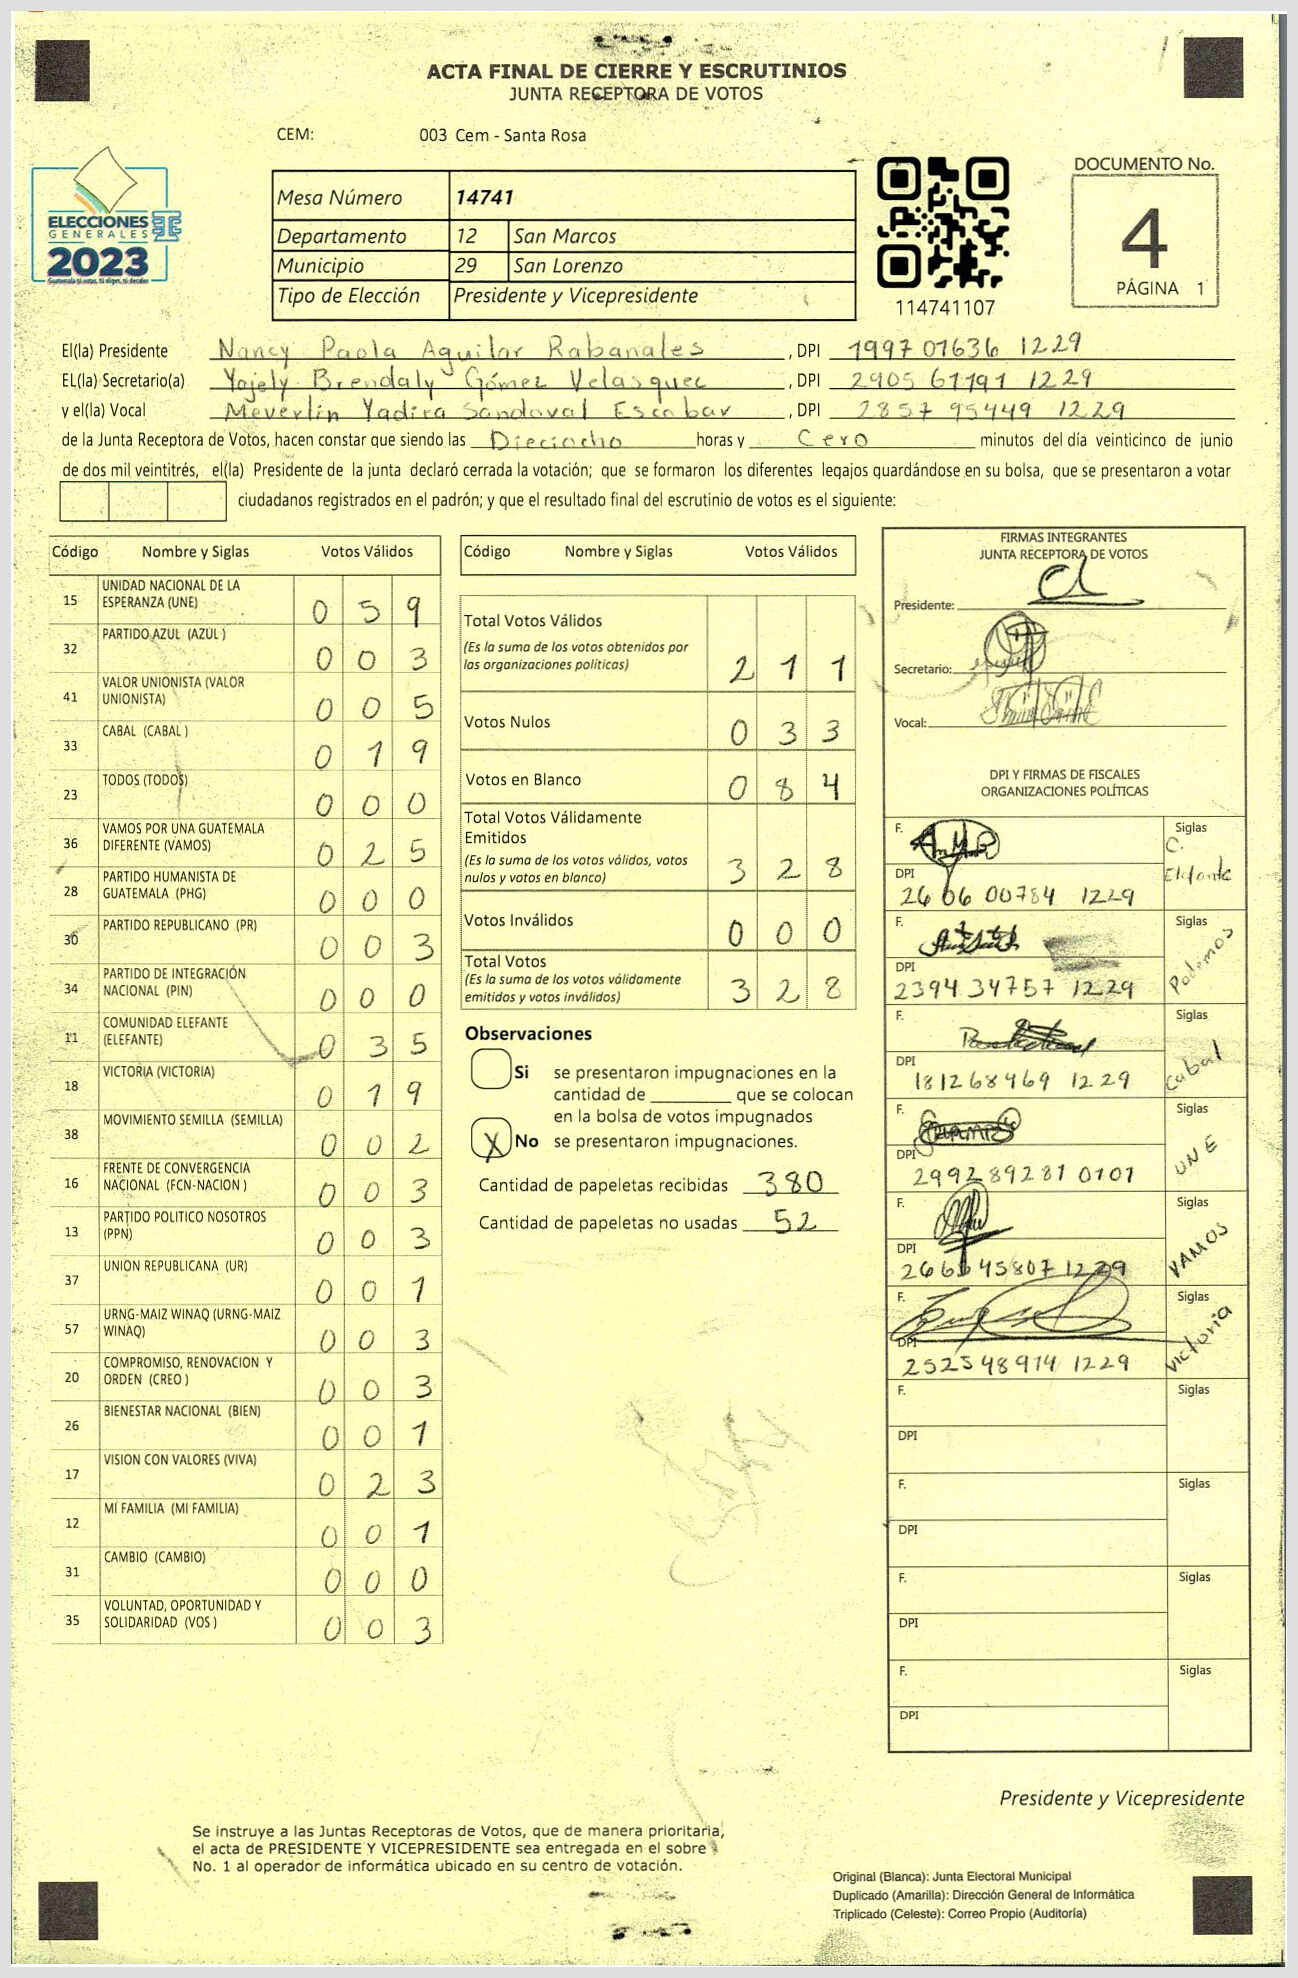 ACTA FINAL DE CIERRE Y ESCRUTINIOS
JUNTA RECEPTORA DE VOTOS
CEM: 003 Cem - Santa Rosa
ELECCIONES
GENERALES
2023
Guatemala tú votas, tú eliges, tú decides
Mesa Número 14741
Departamento 12 San Marcos
Municipio 29 San Lorenzo
Tipo de Elección Presidente y Vicepresidente
114741107
DOCUMENTO No.
4
PÁGINA 1
El(la) Presidente Nancy Paola Aguilar Rabanales , DPI 1997 07636 1229
EL(la) Secretario(a) Yojely Brendaly Gómez Velasquec , DPI 2905 61791 1229
y el(la) Vocal Meverlin Yadira Sandoval Escobar , DPI 2857 95449 1229
de la Junta Receptora de Votos, hacen constar que siendo las Dieciocho horas y Cero minutos del día veinticinco de junio
de dos mil veintitrés, el(la) Presidente de la junta declaró cerrada la votación; que se formaron los diferentes legajos quardándose en su bolsa, que se presentaron a votar
ciudadanos registrados en el padrón; y que el resultado final del escrutinio de votos es el siguiente:
Código Nombre y Siglas Votos Válidos
15 UNIDAD NACIONAL DE LA ESPERANZA (UNE) 0 5 9
32 PARTIDO AZUL (AZUL ) 0 0 3
41 VALOR UNIONISTA (VALOR UNIONISTA) 0 0 5
33 CABAL (CABAL ) 0 1 9
23 TODOS (TODOS) 0 0 0
36 VAMOS POR UNA GUATEMALA DIFERENTE (VAMOS) 0 2 5
28 PARTIDO HUMANISTA DE GUATEMALA (PHG) 0 0 0
30 PARTIDO REPUBLICANO (PR) 0 0 3
34 PARTIDO DE INTEGRACIÓN NACIONAL (PIN) 0 0 0
11 COMUNIDAD ELEFANTE (ELEFANTE) 0 3 5
18 VICTORIA (VICTORIA) 0 1 9
38 MOVIMIENTO SEMILLA (SEMILLA) 0 0 2
16 FRENTE DE CONVERGENCIA NACIONAL (FCN-NACION ) 0 0 3
13 PARTIDO POLITICO NOSOTROS (PPN) 0 0 3
37 UNION REPUBLICANA (UR) 0 0 1
57 URNG-MAIZ WINAQ (URNG-MAIZ WINAQ) 0 0 3
20 COMPROMISO, RENOVACION Y ORDEN (CREO ) 0 0 3
26 BIENESTAR NACIONAL (BIEN) 0 0 1
17 VISION CON VALORES (VIVA) 0 2 3
12 MI FAMILIA (MI FAMILIA) 0 0 1
31 CAMBIO (CAMBIO) 0 0 0
35 VOLUNTAD, OPORTUNIDAD Y SOLIDARIDAD (VOS ) 0 0 3
Código Nombre y Siglas Votos Válidos
Total Votos Válidos 2 1 1
(Es la suma de los votos obtenidos por
las organizaciones politicas)
Votos Nulos 0 3 3
Votos en Blanco 0 8 4
Total Votos Válidamente
Emitidos 3 2 8
(Es la suma de los votos válidos, votos
nulos y votos en blanco)
Votos Inválidos 0 0 0
Total Votos 3 2 8
(Es la suma de los votos válidamente
emitidos y votos inválidos)
Observaciones
Si se presentaron impugnaciones en la
cantidad de ________ que se colocan
en la bolsa de votos impugnados
X No se presentaron impugnaciones.
Cantidad de papeletas recibidas 380
Cantidad de papeletas no usadas 52
FIRMAS INTEGRANTES
JUNTA RECEPTORA DE VOTOS
Presidente:
Secretario:
Vocal:
DPI Y FIRMAS DE FISCALES
ORGANIZACIONES POLÍTICAS
F. Siglas C. Elefante
DPI 2606 00784 1229
F. Siglas Podemos
DPI 2394 34757 1229
F. Siglas Cabal
DPI 181268469 1229
F. Siglas UNE
DPI 299289281 0101
F. Siglas VAMOS
DPI 266645807 1229
F. Siglas Victoria
DPI 252548914 1229
F. Siglas
DPI
F. Siglas
DPI
F. Siglas
DPI
F. Siglas
DPI
Presidente y Vicepresidente
Se instruye a las Juntas Receptoras de Votos, que de manera prioritaria,
el acta de PRESIDENTE Y VICEPRESIDENTE sea entregada en el sobre
No. 1 al operador de informática ubicado en su centro de votación.
Original (Blanca): Junta Electoral Municipal
Duplicado (Amarilla): Dirección General de Informática
Triplicado (Celeste): Correo Propio (Auditoría)